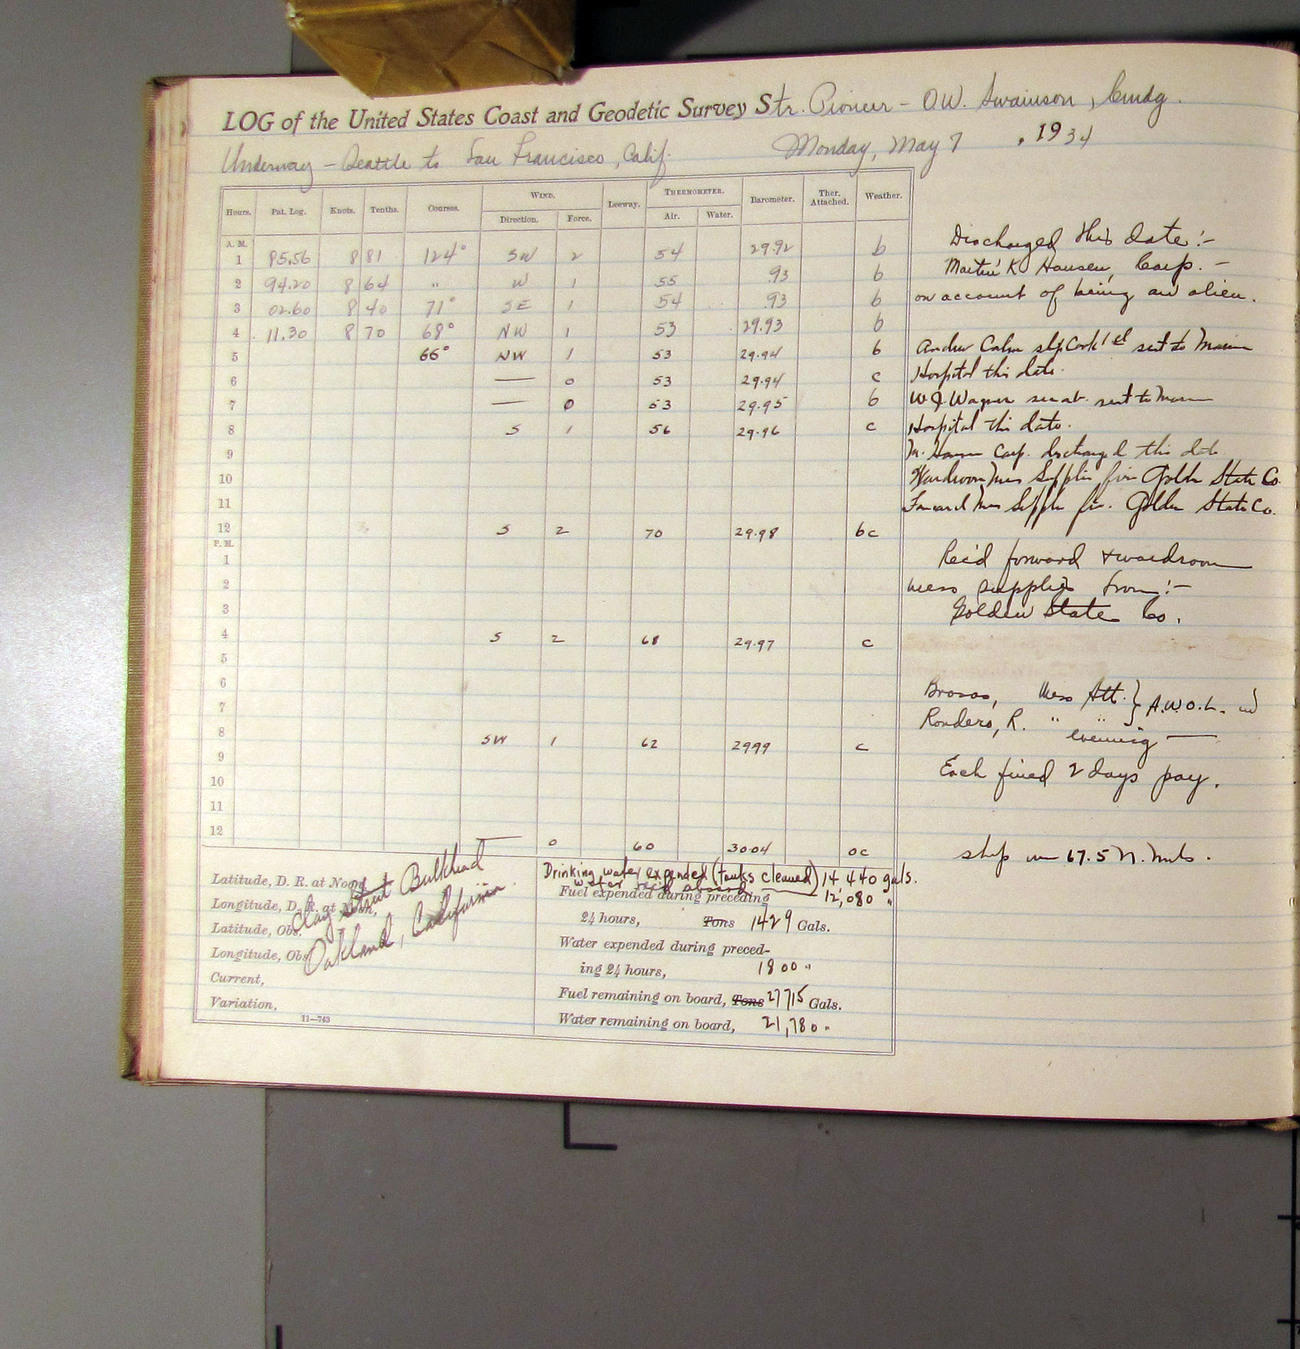 LOG of the United States Coast and Geodetic Survey Str. Pioneer - O.W. Swainson, Cmdg.
Underway - Seattle to San Francisco, Calif. Monday, May 7, 1934
Hours. Pat. Log. Knots. Tenths. Courses. WIND. Direction. Force. Leeway. THERMOMETER. Air. Water. Barometer. Ther. Attached. Weather.
A. M.
1 85.56 8 81 124° SW 2 54 29.92 b
2 94.20 8 64 " W 1 55 .93 b
3 02.60 8 40 71° SE 1 54 .93 b
4 11.30 8 70 68° NW 1 53 29.93 b
5 66° NW 1 53 29.94 b
6 — 0 53 29.94 c
7 — 0 53 29.95 b
8 S 1 56 29.96 c
9
10
11
12 S 2 70 29.98 bc
P. M.
1
2
3
4 S 2 68 29.97 c
5
6
7
8 SW 1 62 2999 c
9
10
11
12 — 0 60 30.04 oc
Discharged this date:-
K Hansen, Carp. -
on account of being an alien.
sent to Marine
Hospital this date.
W J Wagner sent to Marine
Hospital this date.
M. Hansen Carp. discharged this date
Wardroom Mess Supplies from Golden State Co.
Forward Mess Supplies fr. Golden State Co.
Rec'd forward & wardroom
mess supplies from:-
Golden State Co.
Brosas, Mess Att. } A.W.O.L. in
Ronders, R. " " } evening —
Each fined 2 days pay.
ship 67.5 N. Mils.
Latitude, D. R. at Noon,
Longitude, D. R. at Noon,
Latitude, Obs.
Longitude, Obs.
Current,
Variation,
11—743
Clay Street Bulkhead
Oakland, California
Drinking water expended (tanks cleaned) 14,440 gals.
water rec'd aboard — 12,080 "
Fuel expended during preceding
24 hours, Tons 1429 Gals.
Water expended during preced-
ing 24 hours, 1800 "
Fuel remaining on board, Tons 27715 Gals.
Water remaining on board, 21,780 "